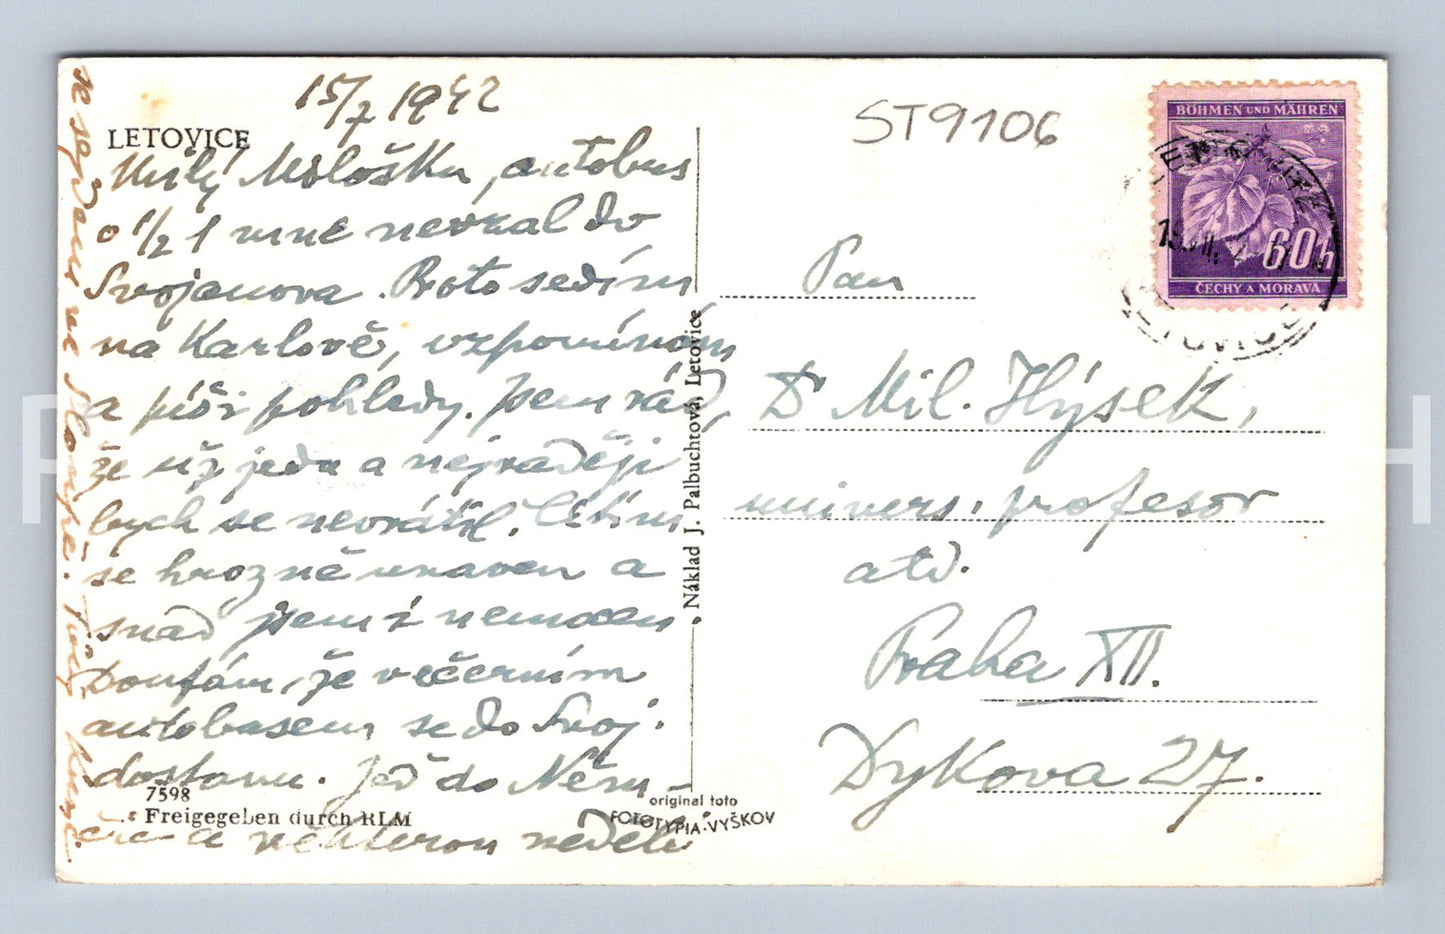 15/7 1942
LETOVICE
Milý Milošku, autobus
o 1/2 1 mne nevzal do
Svojanova. Proto sedím
na Karlově, vzpomínám
a píši pohledy. Jsem rád,
že už jedu a nejraději
bych se nevrátil. Cítím
se hrozně unaven a
snad jsem i nemocen.
Doufám, že večerním
autobusem se do Svoj.
dostanu. Jeď do Něm-
čic a některou neděli
se sejdeme ve
Tvůj
7598
Freigegeben durch RLM
original foto
FOTOTYPIA-VYŠKOV
Náklad J. Palbuchtová, Letovice
ST9106
BÖHMEN UND MÄHREN
60h
ČECHY A MORAVA
Pan
Dr Mil. Hýsek,
univers. profesor
atd.
Praha XII.
Dykova 27.